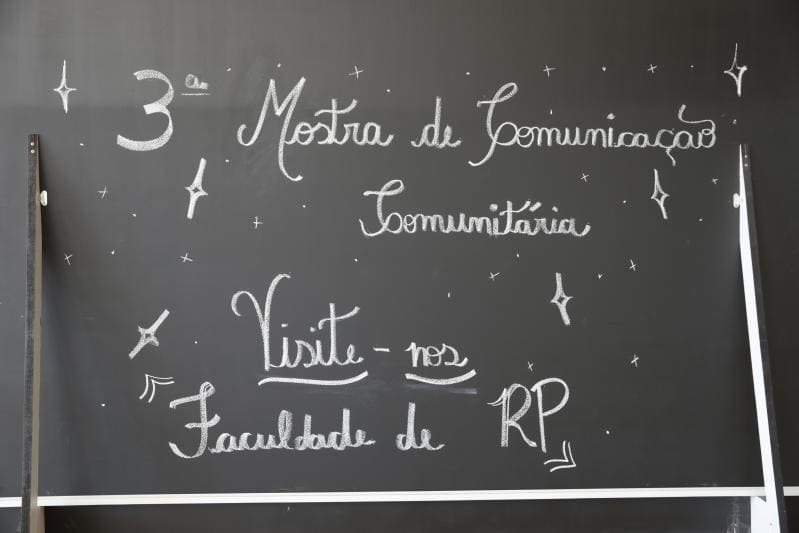 3ª Mostra de Comunicação
Comunitária
Visite-nos
Faculdade de RP